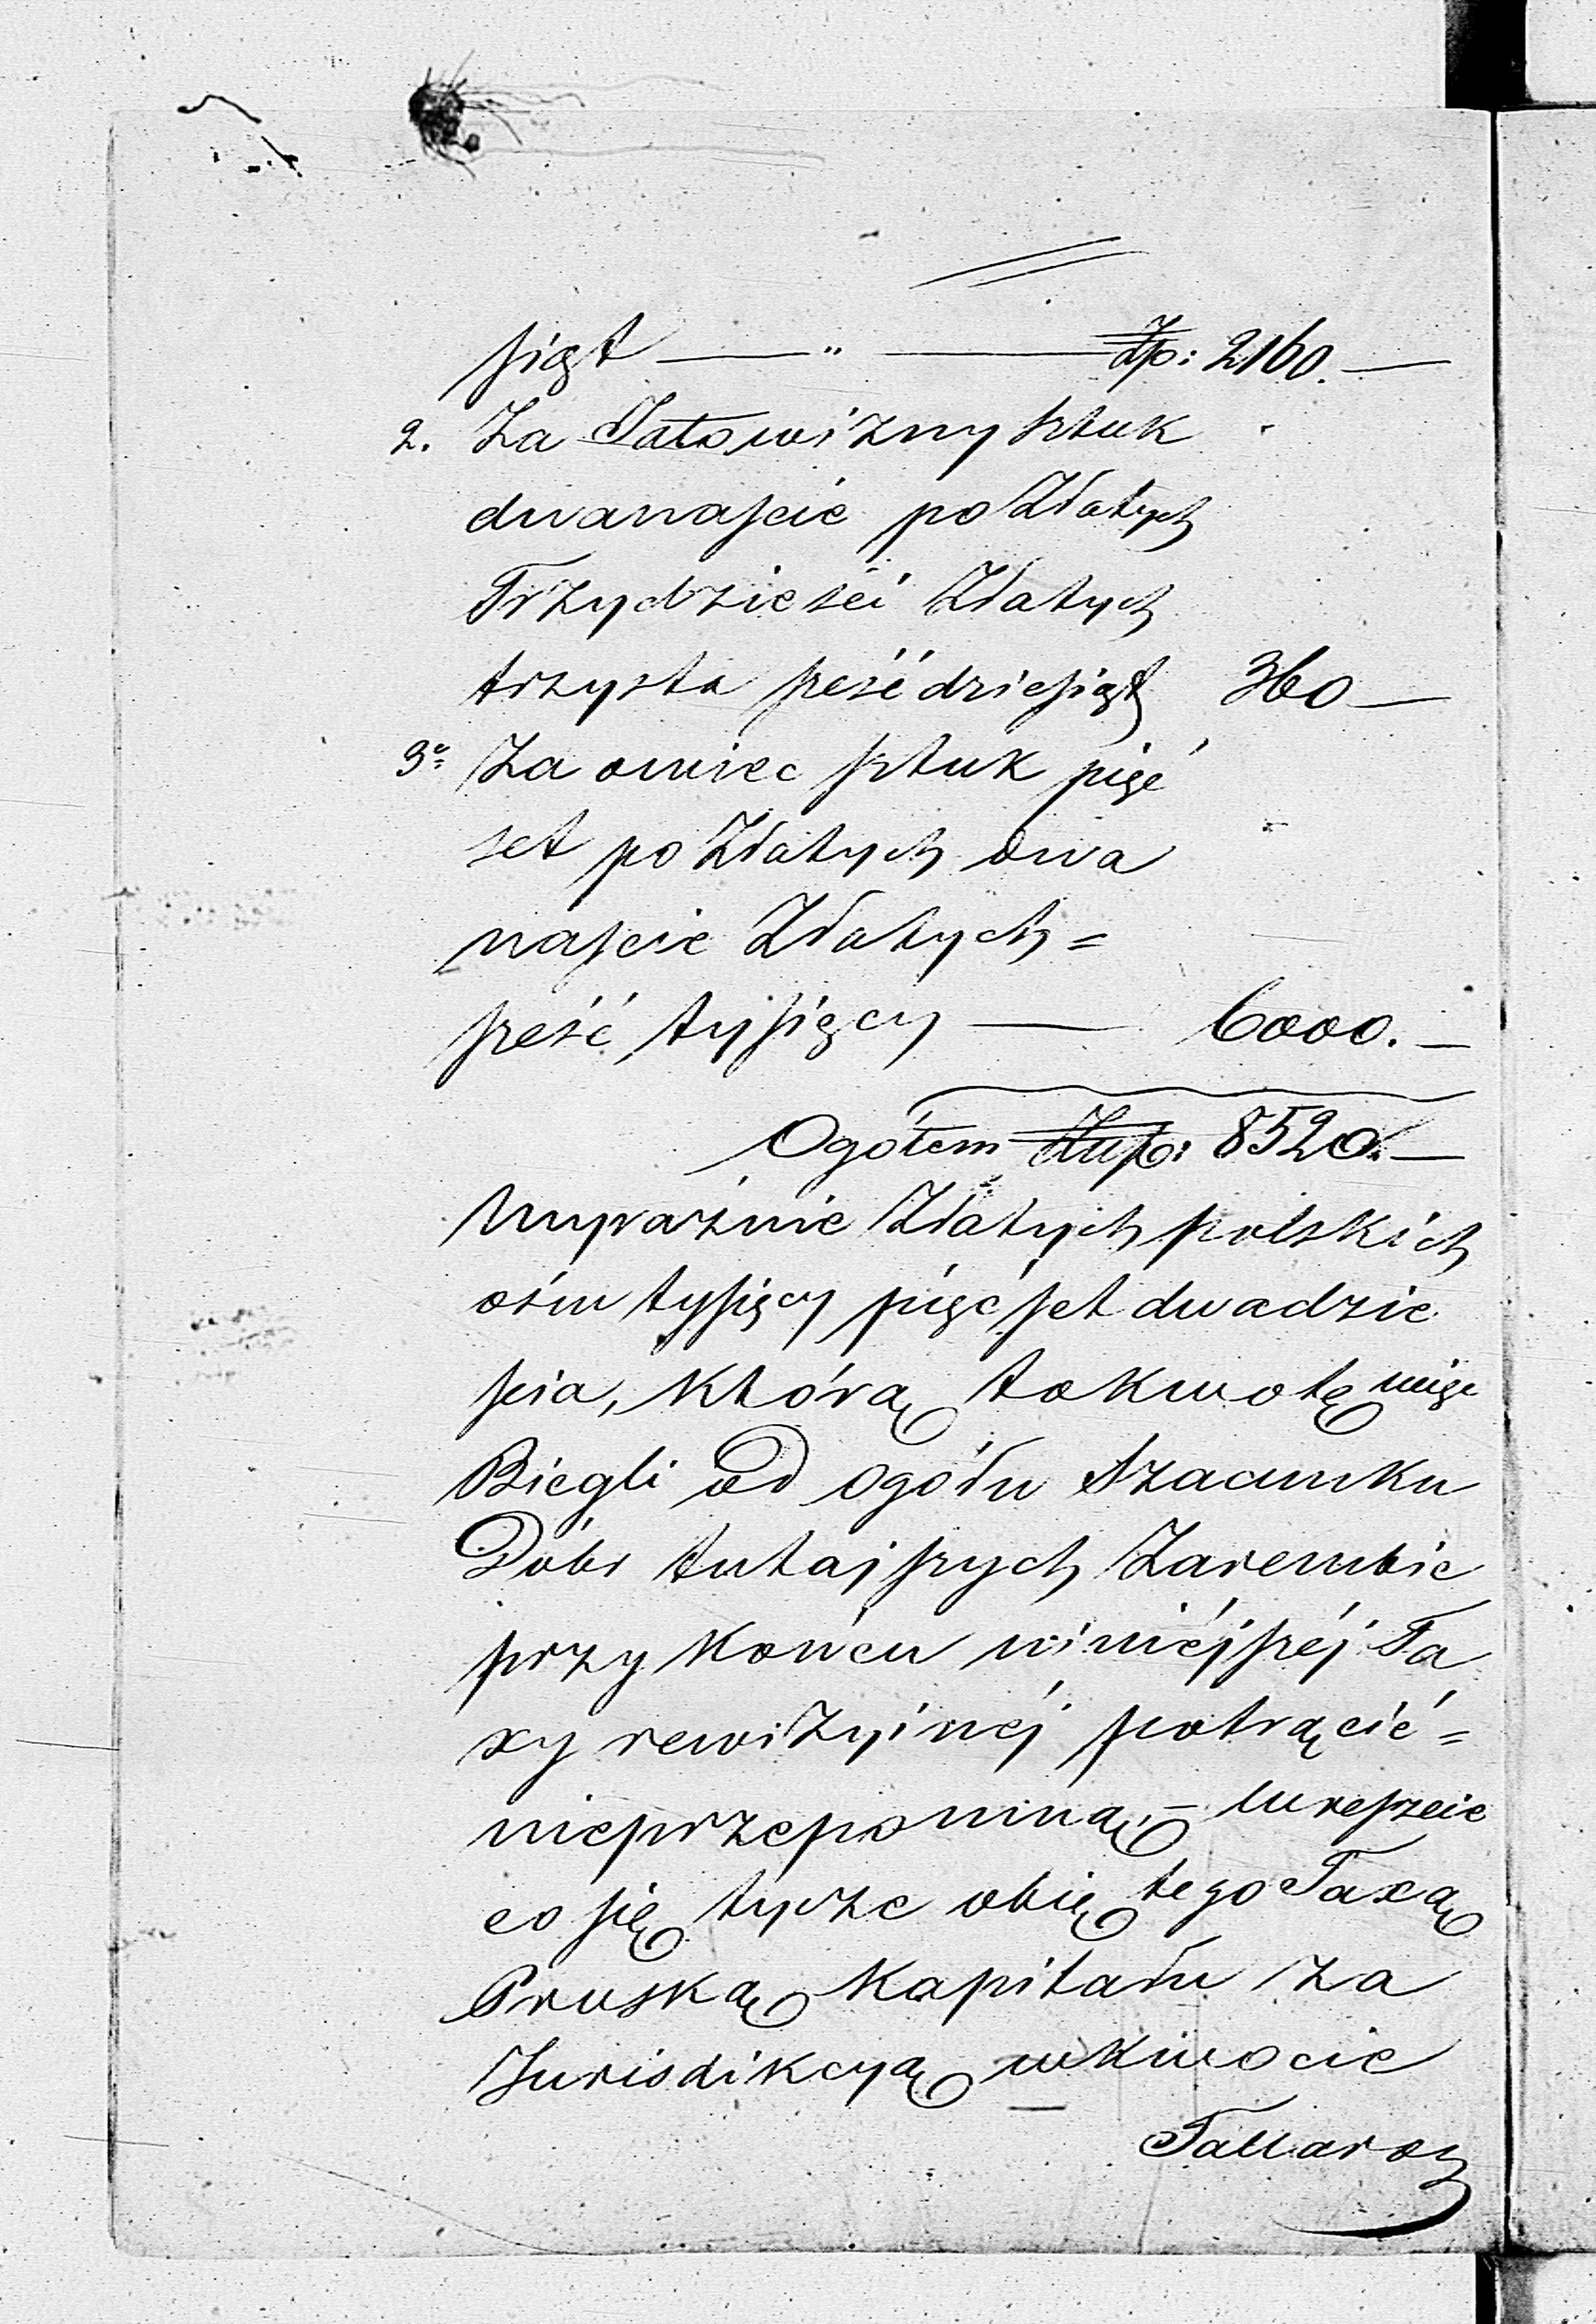 siąt — " — Złp: 2160. —
2. Za Jałowizny sztuk
dwanaście po Złotych
Trzydzieści Złotych
trzysta sześćdziesiąt 360 —
3o Za owiec sztuk pięć
set po Złotych dwa
naście Złotych =
sześć tysięcy — 6000. —
Ogółem Złłp: 8520. —
wyraźnie Złotych polskich
ośm tysięcy pięćset dwadzie
ścia, którą to kwotę
Biegli od ogółu Szacunku
Dóbr tutajszych Zarembie
przy końcu niniéjszéj Ta
xy rewizyinéj potrącić =
nieprzepomną, – wreszcie
co się tycze obiętego Taxą
Pruską Kapitału za
Jurisdikcyą w kwocie
Tallarow